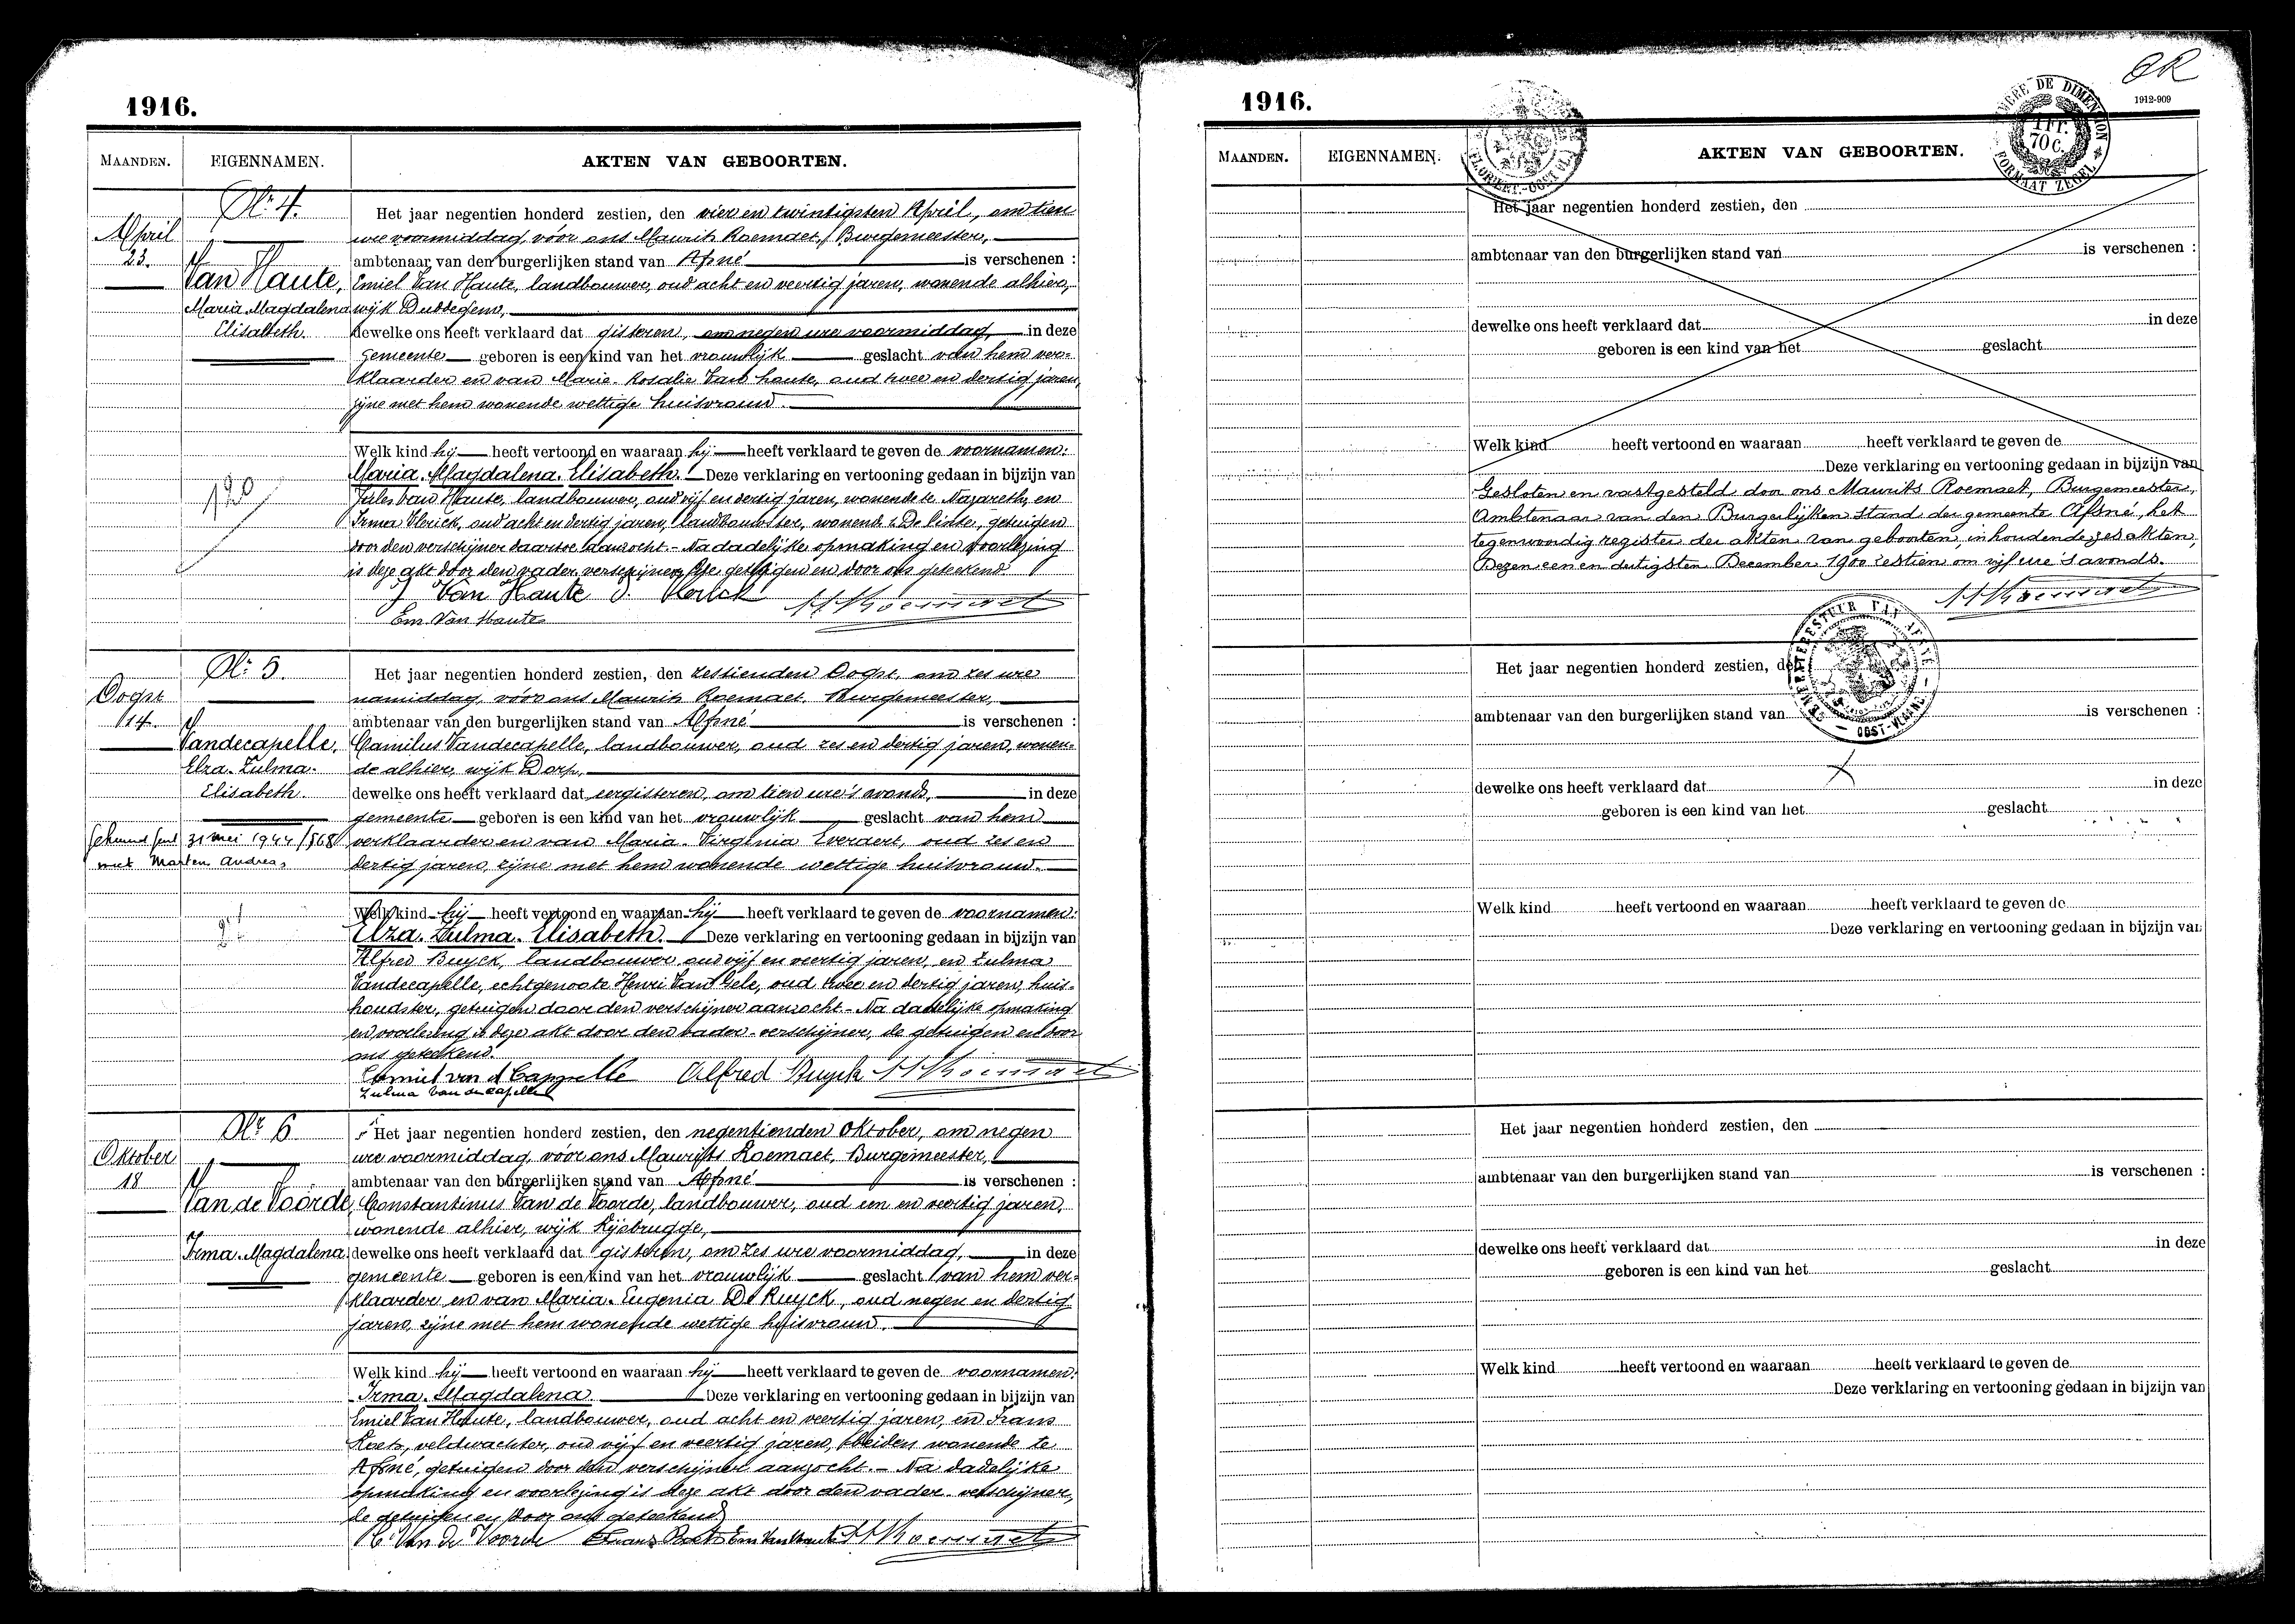 1916.
MAANDEN.
EIGENNAMEN.
AKTEN VAN GEBOORTEN.
Nr 4.
April
23.
Van Haute,
Maria Magdalena
Elisabeth.
Het jaar negentien honderd zestien, den vier en twintigsten April, om tien
ure voormiddag, vóór ons Maurits Roemaet, Burgemeester,
ambtenaar van den burgerlijken stand van Afsné is verschenen :
Emiel Van Haute, landbouwer, oud acht en veertig jaren, wonende alhier,
wijk Duddegem,
dewelke ons heeft verklaard dat gisteren, om negen ure voormiddag, in deze
gemeente geboren is een kind van het vrouwlijk geslacht van hem ver-
klaarder en van Marie-Rosalie Van haute, oud twee en dertig jaren,
zijne met hem wonende wettige huisvrouw.
Welk kind hij heeft vertoond en waaraan hij heeft verklaard te geven de voornamen:
Maria. Magdalena. Elisabeth. Deze verklaring en vertooning gedaan in bijzijn van
Jules Van Haute, landbouwer, oud vijf en dertig jaren, wonende te Nazareth, en
Irma Vlerick, oud acht en dertig jaren, landbouwster, wonende De Pinte, getuigen
door den verschijner daartoe aanzocht. - Na dadelijke opmaking en voorlezing
is deze akt door den vader-verschijner, de getuigen en door ons geteekend.
J Van Haute I. Vlerick
Em. Van Haute
Nr 5.
Oogst
14.
Vandecapelle,
Elza. Zulma.
Elisabeth.
31 mei 1944
met Marten Andrea.
Het jaar negentien honderd zestien, den zestienden Oogst, om zes ure
namiddag, vóór ons Maurits Roemaet, Burgemeester,
ambtenaar van den burgerlijken stand van Afsné is verschenen :
Camilus Vandecapelle, landbouwer, oud zes en dertig jaren, wonen-
de alhier, wijk Dorp,
dewelke ons heeft verklaard dat eergisteren, om tien ure 's avonds, in deze
gemeente geboren is een kind van het vrouwlijk geslacht van hem
verklaarder en van Maria-Virginia Everaert, oud zes en
dertig jaren, zijne met hem wonende wettige huisvrouw.
Welk kind hij heeft vertoond en waaraan hij heeft verklaard te geven de voornamen:
Elza. Zulma. Elisabeth. Deze verklaring en vertooning gedaan in bijzijn van
Alfred Buyck, landbouwer, oud vijf en veertig jaren, en Zulma
Vandecapelle, echtgenoote Henri Van Gele, oud twee en dertig jaren, huis-
houdster, getuigen door den verschijner aanzocht. - Na dadelijke opmaking
en voorlezing is deze akt door den vader-verschijner, de getuigen en door
ons geteekend.
Camiel van d Cappelle Alfred Buyck
Zulma Van de Capelle
Nr 6
Oktober
18
Van de Voorde,
Irma. Magdalena.
Het jaar negentien honderd zestien, den negentienden Oktober, om negen
ure voormiddag, vóór ons Maurits Roemaet, Burgemeester,
ambtenaar van den burgerlijken stand van Afsné is verschenen :
Constantinus Van de Voorde, landbouwer, oud een en veertig jaren,
wonende alhier, wijk Rijsbrugge,
dewelke ons heeft verklaard dat gisteren, om zes ure voormiddag, in deze
gemeente geboren is een kind van het vrouwlijk geslacht van hem ver-
klaarder en van Maria-Eugenia De Ruyck, oud negen en dertig
jaren, zijne met hem wonende wettige huisvrouw.
Welk kind hij heeft vertoond en waaraan hij heeft verklaard te geven de voornamen:
Irma. Magdalena. Deze verklaring en vertooning gedaan in bijzijn van
Emiel Van Haute, landbouwer, oud acht en veertig jaren, en Frans
Roets, veldwachter, oud vijf en veertig jaren, beiden wonende te
Afsné, getuigen door den verschijner aanzocht. - Na dadelijke
opmaking en voorlezing is deze akt door den vader-verschijner,
de getuigen en door ons geteekend
C. Van de Voorde Frans Roets Em Van Haute
1916.
1912-909
TIMBRE DE DIMENSION
1 Fr.
70 C.
FORMAAT ZEGEL
MAANDEN.
EIGENNAMEN.
AKTEN VAN GEBOORTEN.
Het jaar negentien honderd zestien, den
ambtenaar van den burgerlijken stand van is verschenen :
dewelke ons heeft verklaard dat in deze
geboren is een kind van het geslacht
Welk kind heeft vertoond en waaraan heeft verklaard te geven de
Deze verklaring en vertooning gedaan in bijzijn van
Gesloten en vastgesteld door ons Maurits Roemaet, Burgemeester,
Ambtenaar van den Burgerlijken stand der gemeente Afsné, het
tegenwoordig register der akten van geboorten, inhoudende zes akten,
Dezen een en dertigsten December 1900 zestien om vijf ure 's avonds.
GEMEENTEBESTUUR VAN AFSNÉ
OOST-VLAAND.
Het jaar negentien honderd zestien, den
ambtenaar van den burgerlijken stand van is verschenen :
dewelke ons heeft verklaard dat in deze
geboren is een kind van het geslacht
Welk kind heeft vertoond en waaraan heeft verklaard te geven de
Deze verklaring en vertooning gedaan in bijzijn van
Het jaar negentien honderd zestien, den
ambtenaar van den burgerlijken stand van is verschenen :
dewelke ons heeft verklaard dat in deze
geboren is een kind van het geslacht
Welk kind heeft vertoond en waaraan heeft verklaard te geven de
Deze verklaring en vertooning gedaan in bijzijn van